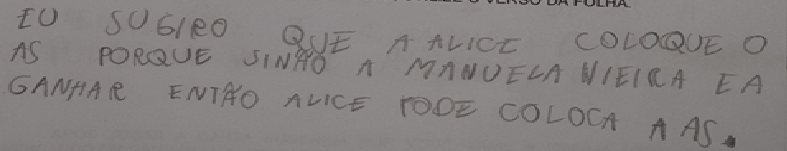 O VERSO DA FOLHA.
EU SUGIRO QUE A ALICE COLOQUE O
AS PORQUE SINÃO A MANUELA VIEIRA E A
GANHAR ENTÃO ALICE PODE COLOCA A AS.